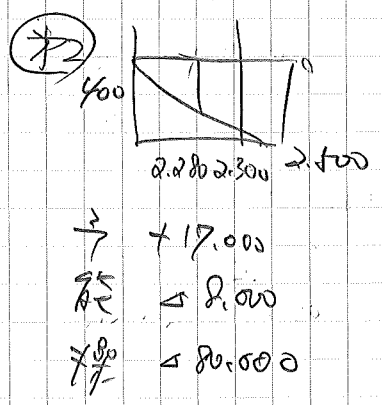 才2
400
2.280 2.300 2.500
予 +17.000
能 △ 8.000
操 △ 80.000